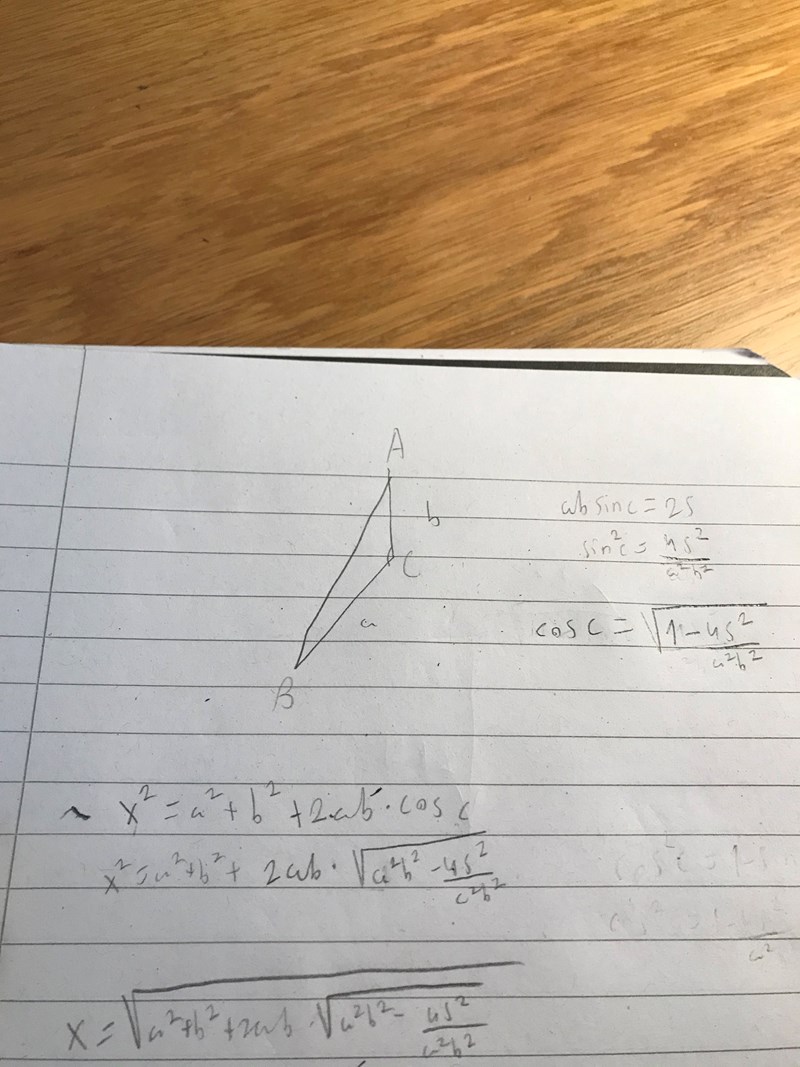 A
b
C
a
B
ab sin c = 2S
sin²c = 4S²/a²b²
cos c = √(1 - 4S²/a²b²)
~ x² = a² + b² + 2ab · cos c
x² = a² + b² + 2ab · √(a²b² - 4S²/a²b²)
x = √(a² + b² + 2ab · √(a²b² - 4S²/a²b²))